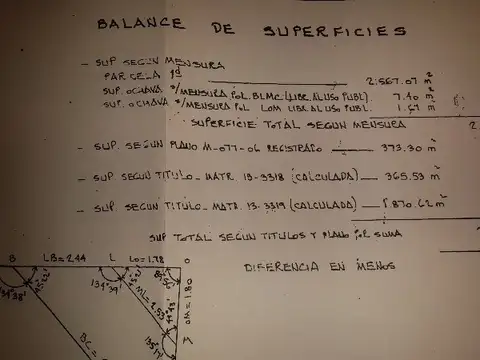 BALANCE DE SUPERFICIES
- SUP SEGÚN MENSURA
PARCELA 1d 2.567.07 m²
SUP. OCHAVA S/MENSURA POL. BLMC (LIBR. AL USO PUBL). 7.40 m²
SUP. OCHAVA S/MENSURA POL LOM LIBR AL USO PUBL. 1.67 m²
SUPERFICIE TOTAL SEGUN MENSURA 2
- SUP. SEGÚN PLANO M-077-06 REGISTRADO 373.30 m²
- SUP SEGUN TITULO - MATR 13-3318 (CALCULADA) 365.53 m²
- SUP. SEGUN TITULO - MATR. 13-3319 (CALCULADA) 1870.62 m²
SUP TOTAL SEGÚN TITULOS Y PLANO POR SUMA
DIFERENCIA EN MENOS
B LB = 2.44 L LO = 1.78 O
134°38'
134°39'
ML = 2.53
OM = 1.80
M
BC =